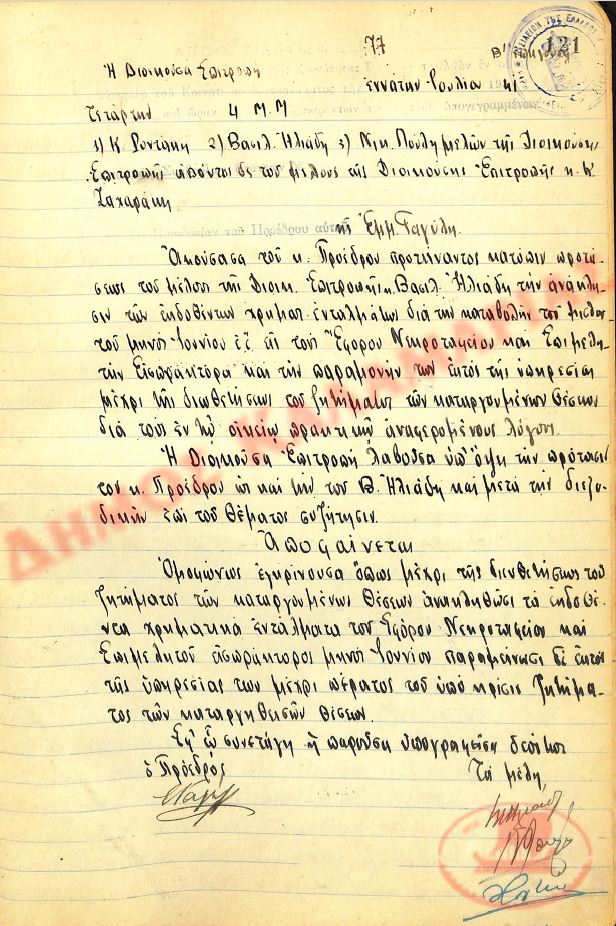 77
Β'
121
Ἡ Διοικοῦσα Ἐπιτροπὴ
ἐννάτην Ἰουλίου 41
Τετάρτην 4 Μ.Μ
1) Κ. Ροντάκη 2) Βασιλ. Ἠλιάδη 3) Νικ. Πούλη μελῶν τῆς Διοικούσης
Ἐπιτροπῆς ἀπόντος δὲ τοῦ μέλους τῆς Διοικούσης Ἐπιτροπῆς κ. Κ.
Ζαχαράκη
Προέδρου αὐτῆς Ἐμμ. Γαγύλη.
Ἀκούσασα τοῦ κ. Προέδρου προτείναντος κατόπιν προτά-
σεως τοῦ μέλους τῆς Διοικ. Ἐπιτροπῆς κ. Βασιλ. Ἠλιάδη τὴν ἀνάκλη-
σιν τῶν ἐκδοθέντων χρηματ. ἐνταλμάτων διὰ τὴν καταβολὴν τοῦ μισθοῦ
τοῦ μηνὸς Ἰουνίου ἐ.ἔ. εἰς τοὺς Ἔφορον Νεκροταφείου καὶ Ἐπιμελη-
τὴν Εἰσπράκτορα καὶ τὴν παραμονήν των ἐκτὸς τῆς ὑπηρεσίας
μέχρι τῆς διευθετήσεως τοῦ ζητήματος τῶν καταργουμένων θέσεων
διὰ τοὺς ἐν τῷ οἰκείῳ πρακτικῷ ἀναφερομένους λόγους.
Ἡ Διοικοῦσα Ἐπιτροπὴ λαβοῦσα ὑπ' ὄψιν τὴν πρότασιν
τοῦ κ. Προέδρου ὡς καὶ τὴν τοῦ Β. Ἠλιάδη καὶ μετὰ τὴν διεξο-
δικὴν ἐπὶ τοῦ θέματος συζήτησιν.
Ἀποφαίνεται
Ὁμοφώνως ἐγκρίνουσα ὅπως μέχρι τῆς διευθετήσεως τοῦ
ζητήματος τῶν καταργουμένων θέσεων ἀνακληθῶσι τὰ ἐκδοθέ-
ντα χρηματικὰ ἐντάλματα τοῦ Ἐφόρου Νεκροταφείου καὶ
Ἐπιμελητοῦ εἰσπράκτορος μηνὸς Ἰουνίου παραμείνωσι δὲ ἐκτὸς
τῆς ὑπηρεσίας των μέχρι πέρατος τοῦ ὑπὸ κρίσιν ζητήμα-
τος τῶν καταργηθεισῶν θέσεων.
Ἐφ' ᾧ συνετάγη ἡ παροῦσα ὑπογραφεῖσα δεόντως
ὁ Πρόεδρος Τὰ μέλη
ΔΗΜΟΣ ΚΑΛΑΜΑΡΙΑΣ